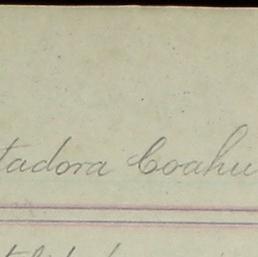 tadora Coahu